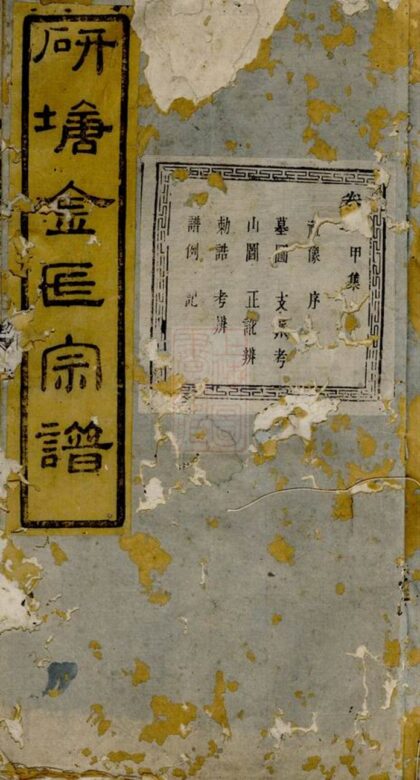 研塘金氏宗譜
卷 甲集
像 序
墓圖 支系考
山圖 正訛辨
勅誥 考辨
譜例 記